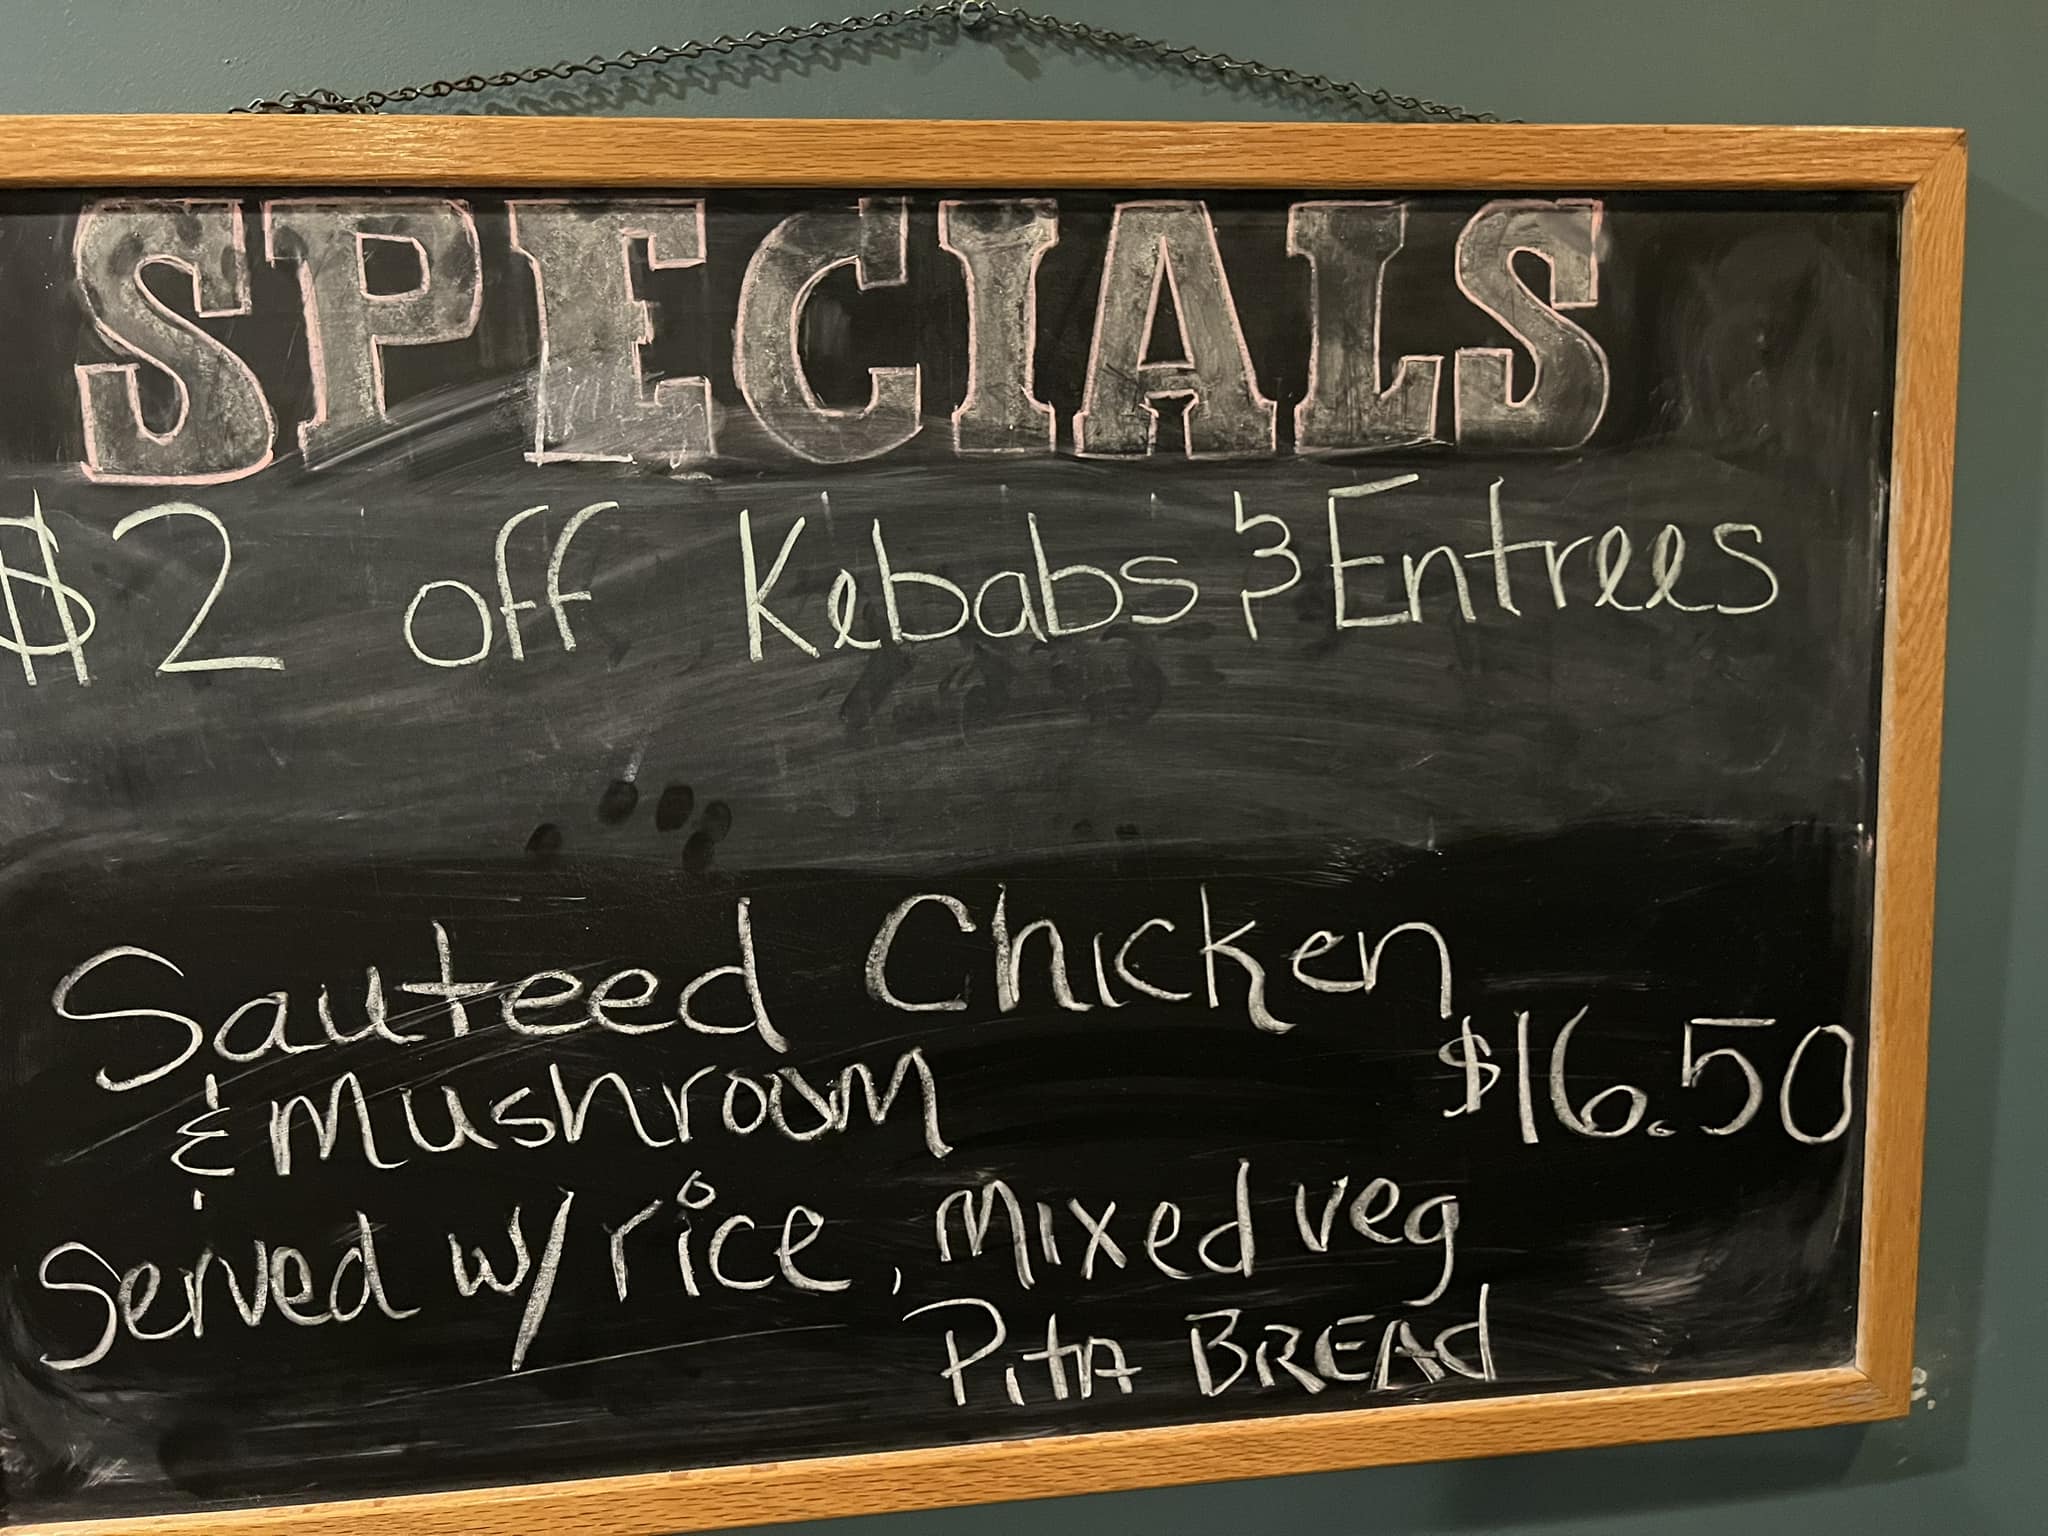 SPECIALS
$2 off Kebabs & Entrees
Sauteed Chicken
& Mushroom
$16.50
Served w/ rice, Mixed veg
Pita BREAd